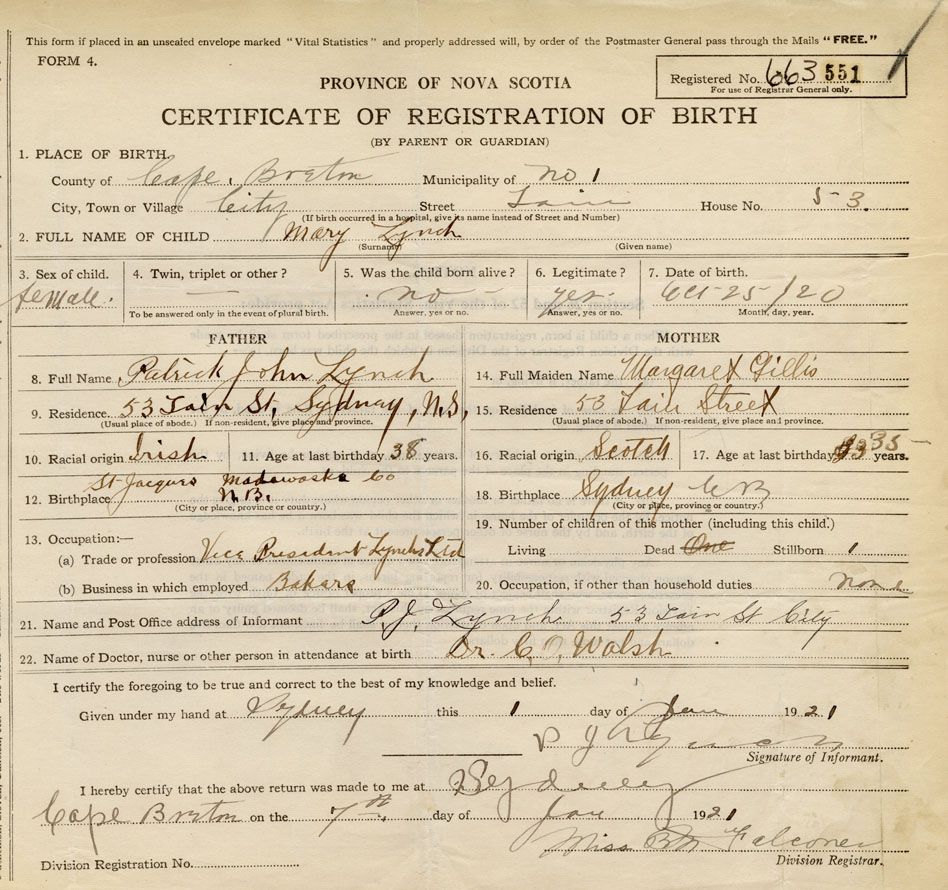 This form if placed in an unsealed envelope marked "Vital Statistics" and properly addressed will, by order of the Postmaster General pass through the Mails "FREE."
FORM 4.
Registered No. 663 551
For use of Registrar General only.
PROVINCE OF NOVA SCOTIA
CERTIFICATE OF REGISTRATION OF BIRTH
(BY PARENT OR GUARDIAN)
1. PLACE OF BIRTH.
County of Cape Breton Municipality of No 1
City, Town or Village City Street Tain House No. 53
(If birth occurred in a hospital, give its name instead of Street and Number)
2. FULL NAME OF CHILD Mary Lynch
(Surname) (Given name)
3. Sex of child. 4. Twin, triplet or other? 5. Was the child born alive? 6. Legitimate? 7. Date of birth.
female. — no yes. Oct 25/20
To be answered only in the event of plural birth. Answer, yes or no. Answer, yes or no. Month, day, year.
FATHER MOTHER
8. Full Name Patrick John Lynch 14. Full Maiden Name Margaret Gillis
9. Residence 53 Tain St, Sydney, N.S, 15. Residence 53 Tain Street
(Usual place of abode.) If non-resident, give place and province. (Usual place of abode.) If non-resident, give place and province.
10. Racial origin Irish 11. Age at last birthday 38 years. 16. Racial origin Scotch 17. Age at last birthday 35 years.
St Jacques Madawaska Co
12. Birthplace N.B. 18. Birthplace Sydney C B
(City or place, province or country.) (City or place, province or country.)
13. Occupation:— 19. Number of children of this mother (including this child.)
(a) Trade or profession Vice President Lynchs Ltd Living Dead One Stillborn 1
(b) Business in which employed Bakers 20. Occupation, if other than household duties none
21. Name and Post Office address of Informant P.J. Lynch 53 Tain St City
22. Name of Doctor, nurse or other person in attendance at birth Dr. C. O. Walsh
I certify the foregoing to be true and correct to the best of my knowledge and belief.
Given under my hand at Sydney this 1 day of Jan 1921
P J Lynch
Signature of Informant.
I hereby certify that the above return was made to me at Sydney
Cape Breton on the 7th day of Jan 1921
Miss Falconer
Division Registration No. Division Registrar.